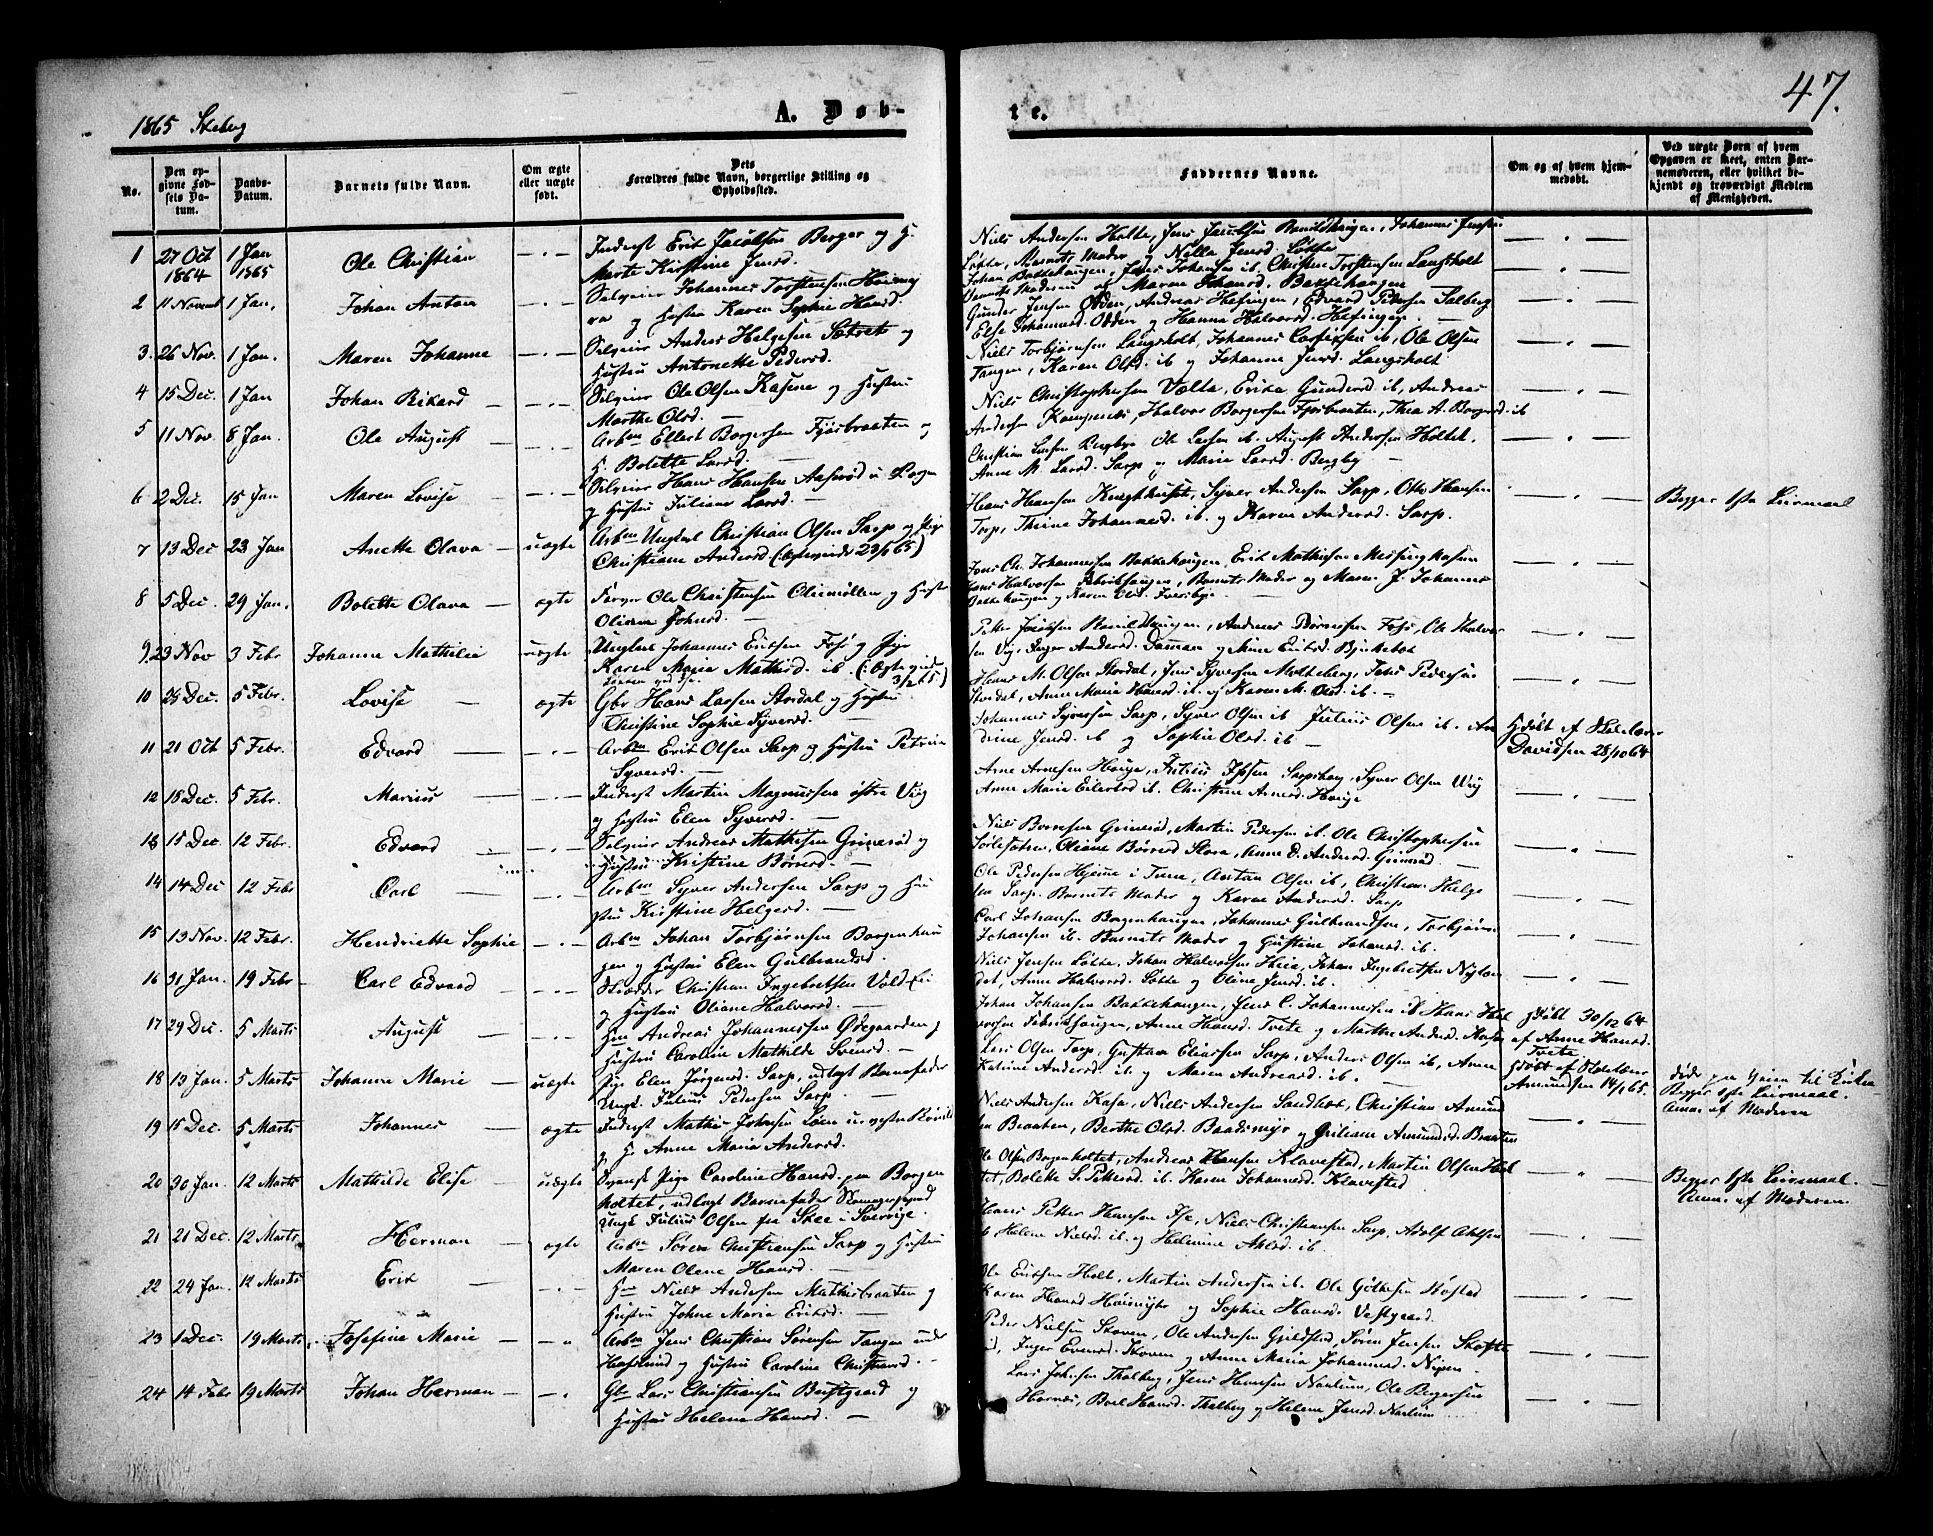 47.
1865 Skeberg
A. Døb-
te.
No.
Den opgivne Fødsels Datum.
Daabs-Datum.
Barnets fulde Navn.
Om ægte eller uægte født.
Dets Forældres fulde Navn, borgerlige Stilling og Opholdssted.
Faddernes Navne.
Om og af hvem hjemmedøbt.
Ved uægte Børn af hvem Opgaven er skeet, enten Barnemoderen, eller hvilket bekjendt og troværdigt Medlem af Menigheden.
1 27 Oct 1864 1 Jan 1865 Ole Christian — " — Inderst Erik Jacobsen Berger og H.
Marte Kirstine Jensd.
Niels Andersen Holte, Jens Jacobsen Ramildhaugen, Johannes Jensen
Løkke, Barnets Moder og Nella Jensd. Løkke
2 11 Novemb 1 Jan. Johan Anton — " — Selveier Johannes Torstensen
og Hustru Karen Sophie Hansd.
Johan Bakkehaugen, Jens Johansen ib. Christen Torstensen Langsholt
Maren Johansd. Bakkehaugen
3. 26 Nov. 1 Jan. Maren Johanne — " — Selveier Anders Helgesen Sætret og
Hustru Antonette Pedersd.
Gunder Jensen Odden, Andreas Hefingen, Edvard Pedersen Solberg
Else Johannesd. Odden og Hanna Halvorsd. Hefingen
4 15 Dec. 1 Jan Johan Rikard — " — Selveier Ole Olsen Kasene og Hustru
Marthe Olsd. —
Niels Torbjørnsen Langsholt, Johannes ib, Ole Olsen
Tangen, Karen Olsd. ib og Johanne Jensd. Langsholt
5 11 Nov. 8 Jan. Ole August — " — Arbm Ellert Borgersen Fjøsbraaten og
H. Bolette Larsd. —
Niels Christophersen Vælta, Erika Gundersd. ib, Andreas
Andersen Kampenes, Halvor Borgersen Fjøsbraaten, Thea A. Borgersd. ib
6 2 Dec. 15 Jan Maren Lovise — " — Selveier Hans Hansen Aaserød u. Borgen
og Hustru Juliane Larsd. —
Christian Larsen Bergby Ole Larsen ib. August Andersen Holtet.
Anne M. Larsd. Sarp og Marie Larsd. Bergby —
7 13 Dec 23 Jan Anette Olava — uægte Arbm Ungkarl Christian Olsen Sarp og Pige
Christiane Andersd 23/1 65)
Hans Hansen Syver Andersen Sarp, Otto Hansen
Torp, Thrine Johannesd. ib. og Karen Andersd. Sarp.
Begges 1ste Leiermaal
8 5 Dec. 29 Jan. Bolette Olava — ægte Farver Ole Christensen Oliemøllen og Hustru
Oliane Johnsd. —
Jens Ol. Johannesen Bakkehaugen, Erik Mathisen
Hans Halvorsen Fabrikhaugen, Barnets Moder og Maren J. Johannes
Bakkehaugen og Karen Olsd.
9. 29 Nov 3 Febr Johanne Mathilie uægte Ungkarl Johannes Eriksen Fosj og Pige
Karen Maria Mathisd. ib. 3/2 65)
Petter Jacobsen Ramildhaugen, Andreas Børresen Fosj, Ole Halvor
sen Viig, Inger Andersd. Damman og Anne Eriksd. Birketvet
10 28 Dec. 5 Febr. Lovise — ægte Gbr Hans Larsen Stordal og Hustru
Christine Sophie Syversd. —
Hans M. Olsen Stordal, Jens Syversen Melleberg, Jens Pedersen
Stordal, Anne Marie Hansd. ib. og Karen M. Olsd. ib. —
11 21 Oct 5 Febr. Edvard — " — Arbm Erik Olsen Sarp og Hustru Petrine
Syversd. —
Johannes Syversen Sarp, Syver Olsen ib Julius Olsen ib. An
drine Jensd. ib og Sophie Olsd. ib —
Hjdøbt af
Davidsen 28/10 64
12 18 Dec. 5 Febr. Marius — " — Inderst Martin Magnussen østre Viig
og Hustru Elen Syversd. —
Arne Arnesen Hauge, Julius Ipsen Sarpsborg, Syver Olsen Viig
Anne Marie Eilertsd ib. Christine Arnesd. Hauge
13 15 Dec 12 Febr. Edvard — " — Selveier Andreas Mathisen Grimerød og
Hustru Kristine Børresd. —
Niels Børresen Grimerød, Martin Pedersen ib. Ole Christophersen
Oliane Børresd Skora, Anne D. Andersd. Grimerød —
14 14 Dec 12 Febr Carl — " — Arbm Syver Andersen Sarp og Hu
stru Kirstine Helgesd. —
Ole Pedersen Hejene i Tune, Anton Olsen ib, Christian Helge
sen Sarp. Barnets Moder og Karen Andersd. Sarp
15 13 Nov. 12 Febr. Henriette Sophie — " — Arbm Johan Torbjørnsen Borgenhau
gen og Hustru Elen Gulbrandsd.
Carl Johansen Borgenhaugen, Johannes Gulbrandsen, Torbjørn
Johansen ib. Barnets Moder og Gustine Johansd. ib.
16 31 Jan. 19 Febr Carl Edvard — " — Skrædder Christian Ingebretsen Vold
og Hustru Oliane Halvorsd. —
Niels Jensen Løkke, Johan Halvorsen Johan Ingebretsen Nylan
det, Anne Halvorsd. Løkke og Oline Jensd. ib.
17 29 Dec. 5 Marts August — " — Hm Andreas Johannessen Ødegaarden og
Hustru Caroline Mathilde Svensd. —
Johan Johansen Bakkehaugen, Jens C. Johannessen ib Hans Hal
vorsen Fabrikhaugen, Anne Hansd. Tvete og Marthe Andersd.
Hjdøbt 30/12 64
af Anne Hansd.
Tvete
18 13 Jan. 5 Marts Johanne Marie — uægte Pige Elen Jørgensd. Sarp, udlagt Barnefader
Ungk. Julius Pedersen Sarp. —
Lars Olsen Torp, Gustava Eliassen Sarp, Anders Olsen ib, Anne
Katrine Andersd. ib. og Maren Andreasd. ib. —
Hjdøbt af
Amundsen 14/1 65.
døde paa Veien til Kirken
Begges 1ste Leiermaal.
Anm. af Moderen
19 15 Dec. 5 Marts Johannes — ægte Inderst Mathis Johnsen Løen
og H. Anne Maria Andersd.
Niels Andersen Kasa, Niels Andersen Sandtvet, Christian Amund
sen Braaten, Berthe Olsd. Baadsmyr og Juliane Amundsd. Braaten
20 30 Jan. 12 Marts Mathilde Elise — uægte Svensk Pige Caroline Hansd. paa Borgen
holtet, udlagt Barnefader
Ungk. Julius Olsen fra Skee i Sverige.
Ole Olsen Borgenholtet, Andreas Hansen Klavestad, Martin Olsen
Bolette S. Pettersd. ib. Karen Johannesd. Klavestad
Begges 1ste Leiermaal —
Anm. af Moderen.
21 21 Dec. 12 Marts Herman — ægte Arbm Søren Christiansen Sarp og Hustru
Maren Olene Hansd. —
Hans Petter Hansen Ise, Niels Christiansen Sarp, Adolf Axelsen
ib Helene Nielsd. ib. og Helmine Axlsd. ib.
22 24 Jan. 12 Marts Erik — " — Hm Niels Andersen Mathisbraaten og
Hustru Johne Maria Eriksd. —
Ole Eriksen Holt, Martin Andersen ib. Ole Røstad
Karen Hansd og Sophie Hansd. Vestgaard.
23 1 Dec. 19 Marts Josefine Marie — " Arbm Jens Christian Sørensen Tangen under
Hafslund og Hustru Caroline Christiansd. —
Peder Nielsen Skoven, Ole Andersen Gjeldstad, Søren Jensen
Inger Evensd. Skoven og Anne Maria Johannesd. Nipen
24 14 Febr 19 Marts Johan Herman — " Gbr Lars Christiansen Bustgaard og
Hustru Helene Hansd. —
Lars Johnsen Thalberg, Jens Hansen Narlum, Ole Borgersen
Hornæs, Boel Hansd. Thalberg og Helene Jensd. Narlum